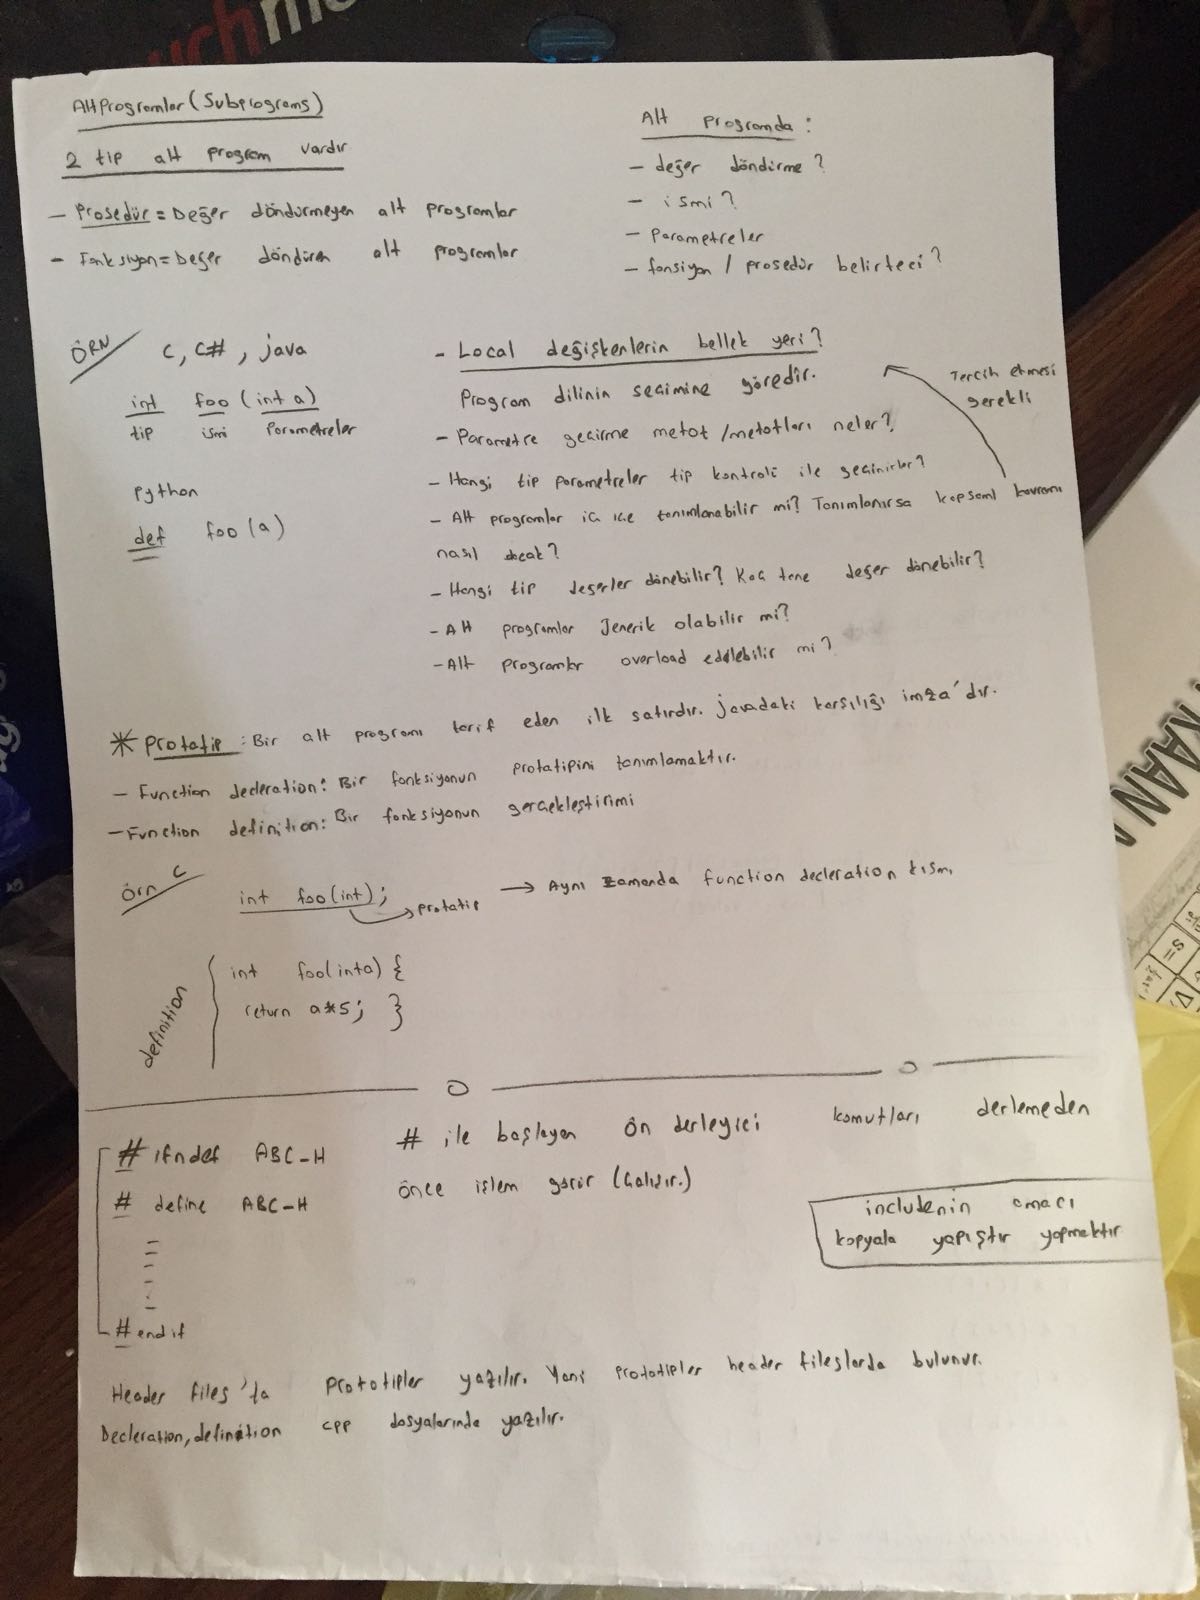 Alt Programlar (Subprograms)
2 tip alt program vardır
- Prosedür = Değer döndürmeyen alt programlar
- Fonksiyon = Değer döndüren alt programlar
Alt Programda :
- değer döndürme ?
- ismi ?
- Parametreler
- fonsiyon / prosedür belirteci ?
ÖRN C, C# , java
int foo (int a)
tip ismi Parametreler
Python
def foo (a)
- Local değişkenlerin bellek yeri ?
Program dilinin seçimine göredir.
- Parametre geçirme metot / metotları neler ?
- Hangi tip parametreler tip kontrolü ile geçirilir ?
- Alt programlar iç içe tanımlanabilir mi ? Tanımlanırsa kapsam kavramı
nasıl olacak ?
- Hangi tip değerler dönebilir ? Kaç tane değer dönebilir ?
- Alt programlar Jenerik olabilir mi ?
- Alt programlar overload edilebilir mi ?
Tercih etmesi
gerekli
* Protatip : Bir alt programı tarif eden ilk satırdır. Javadaki karşılığı imza'dır.
- Function decleration : Bir fonksiyonun protatipini tanımlamaktır.
- Function definition : Bir fonksiyonun gerçekleştirimi
Örn C
int foo (int) ; → Aynı zamanda function decleration kısmı
protatip
definition
int foo (int a) {
return a*5 ; }
# ifndef ABC-H
# define ABC-H
# endif
# ile başlayan ön derleyici komutları derlemeden
önce işlem görür (Çalışır.)
includenin amacı
kopyala yapıştır yapmaktır
Header files'ta prototipler yazılır. Yani prototipler header fileslarda bulunur.
Decleration, definition cpp dosyalarında yazılır.
KAAN